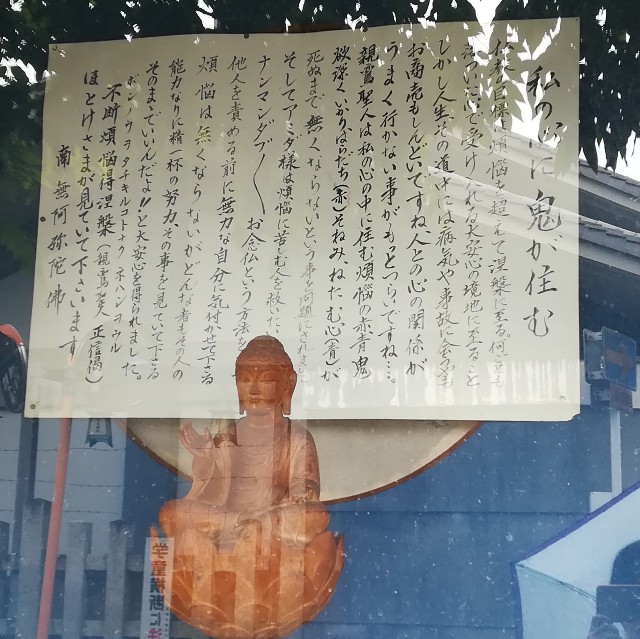 私の心に鬼が住む
仏教の目標は煩悩を超えて涅槃に至る何ごとも
広い心で受け入れる大安心の境地に至ること
しかし人生その道中には病気や事故に会うのも
お商売もしんどいですね人との心の関係が
うまく行かない事がもっとつらいですね…。
親鸞聖人は私の心の中に住む煩悩の赤青鬼
欲深くいかりはらだち(赤)そねみねたむ心(青)が
死ぬまで無くならないという事を問題にされました
そしてアミダ様は煩悩に苦しむ人を救いたい
ナンマンダブ〱 お念仏という方法を
他人を責める前に無力な自分に気付かせて下さる
煩悩は無くならないがどんな者もその人の
能力なりに精一杯の努力その事を見ていて下さる
そのまゝでいいんだよ!!と大安心を得られました。
ボンノウヲタチキルコトナク ネハンヲウル
不断煩悩得涅槃(親鸞聖人 正信偈)
ほとけさまが見ていて下さいます
南無阿弥陀佛
学童横断に